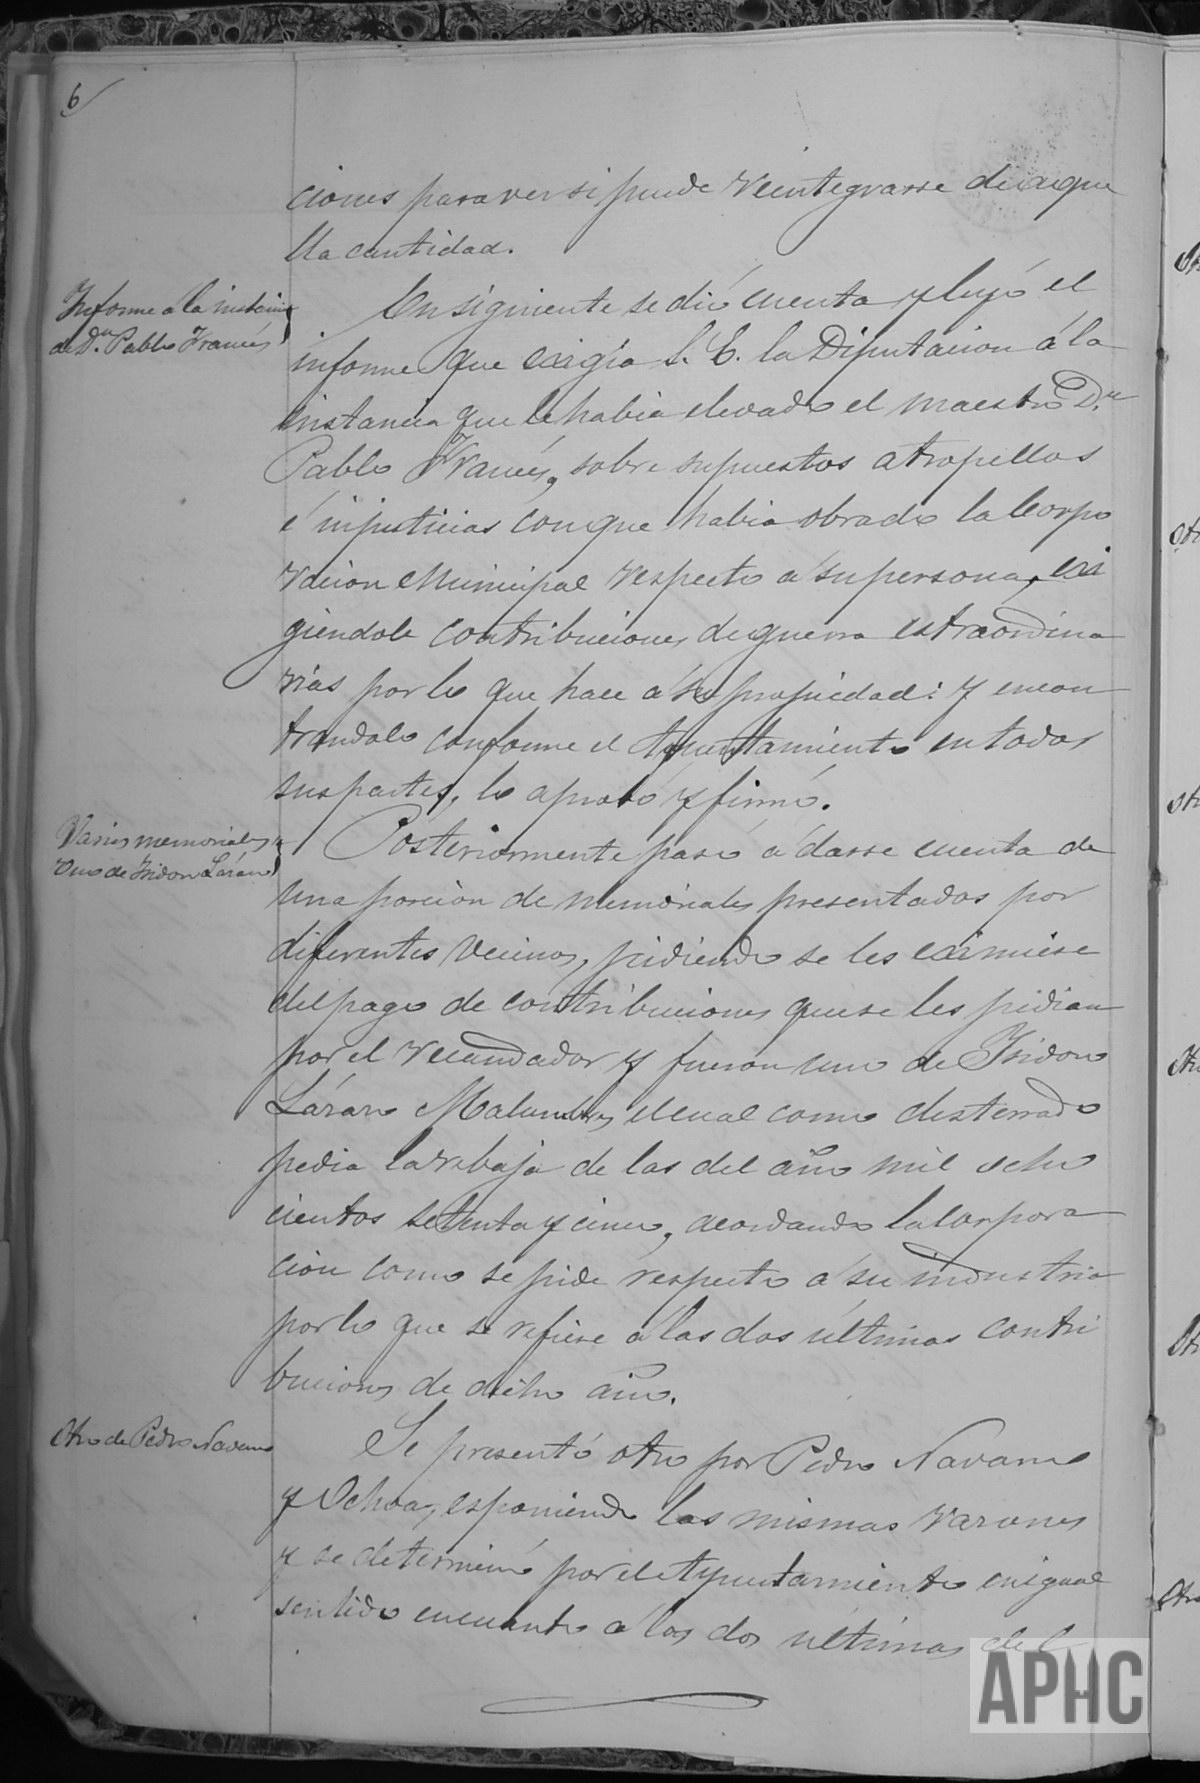 6
ciones para ver si puede reintegrarse de aque
lla cantidad.
Informe á la instancia
de Dn. Pablo Francés
En siguiente se dió cuenta y leyó el
informe que exigia S. E. la Diputacion á la
instancia que le habia elevado el maestro Dn.
Pablo Francés, sobre supuestos atropellos
é injusticias con que habia obrado la Corpo
racion Municipal respecto á su persona, exi
giendole contribuciones de guerra estraordina
rias por lo que hace á su propiedad: y encon
trandolo conforme el Ayuntamiento en todas
sus partes, lo aprobó y firmó.
Varios memoriales
Uno de Isidoro Lázaro
Posteriormente pasó á darse cuenta de
una porcion de memoriales presentados por
diferentes vecinos, pidiendo se les eximiese
del pago de contribuciones que se les pidian
por el recaudador y fueron uno de Isidoro
Lázaro Malumbres, el cual como desterrado
pedia la rebaja de las del año mil ocho
cientos setenta y cinco, acordando la Corpora
cion como se pide respecto á su industria
por lo que se refiere á las dos últimas contri
buciones de dicho año.
Otro de Pedro Navarro
Se presentó otro por Pedro Navarro
y Ochoa, esponiendo las mismas razones
y se determinó por el Ayuntamiento en igual
sentido en cuanto á las dos últimas del
APHC